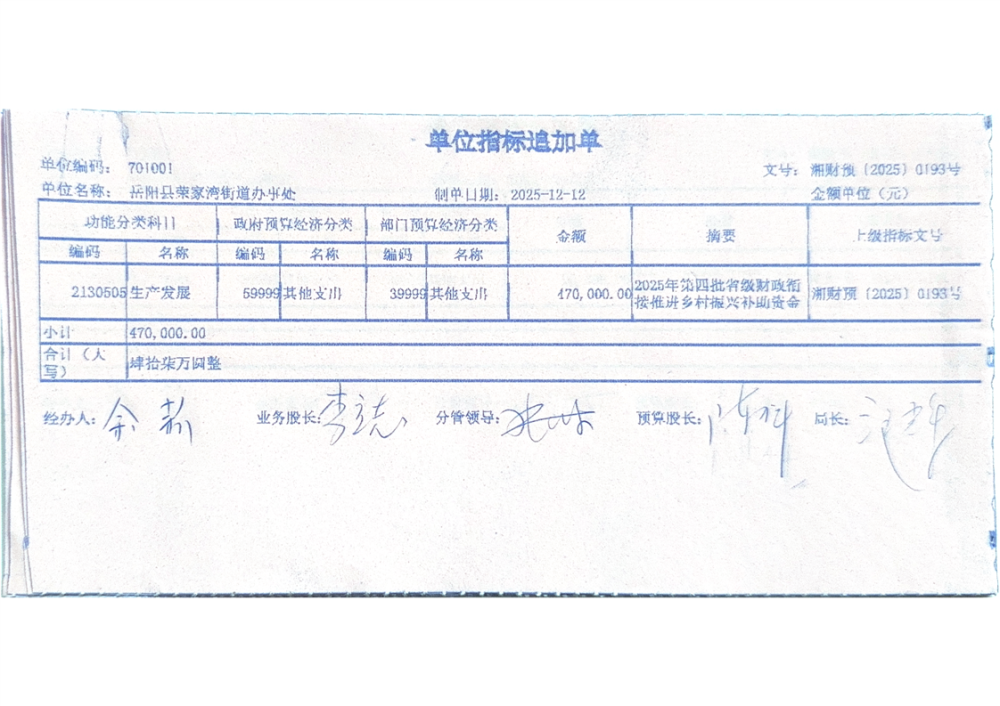 单位指标追加单
单位编码： 701001 文号： 湘财预〔2025〕0193号
单位名称： 岳阳县荣家湾街道办事处 制单日期： 2025-12-12 金额单位（元）
功能分类科目 政府预算经济分类 部门预算经济分类 金额 摘要 上级指标文号
编码 名称 编码 名称 编码 名称
2130505 生产发展 59999 其他支出 39999 其他支出 470,000.00 2025年第四批省级财政衔 湘财预〔2025〕0193号
接推进乡村振兴补助资金
小计 470,000.00
合计（大
写） 肆拾柒万圆整
经办人： 业务股长： 李志 分管领导： 预算股长： 局长：